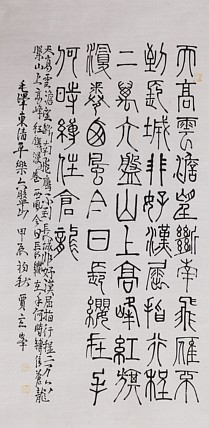 天高雲澹望斷南飛雁不
到長城非好漢屈指行程
二萬六盤山上高峰紅旗
漫卷西風今日長纓在手
何時縛住倉龍
天高雲澹望斷南飛雁不到長城非好漢屈指行程二萬六
盤山上高峰紅旗漫卷西風今日長纓在手何時縛住蒼龍
毛澤東清平樂六盤山 甲 秋 賈